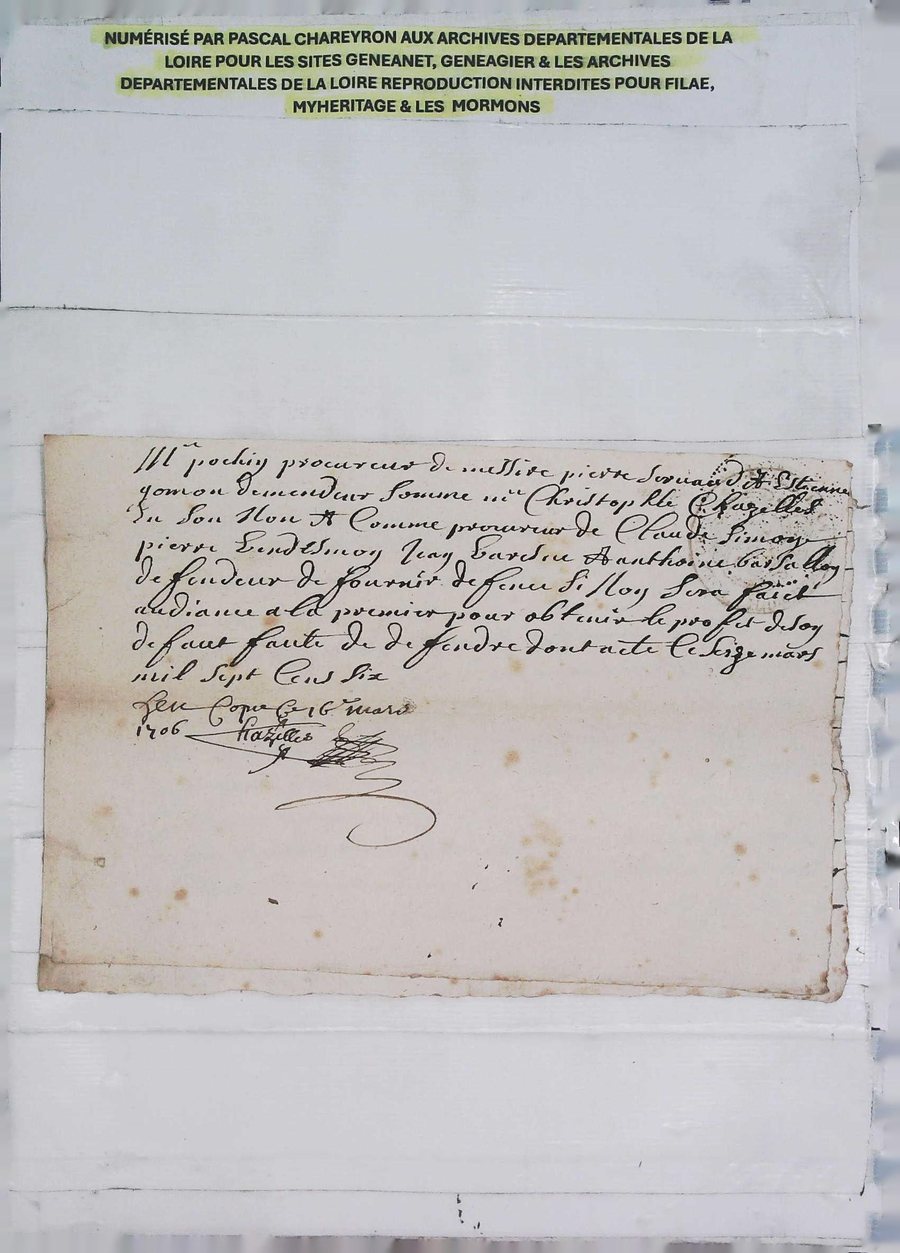 NUMÉRISÉ PAR PASCAL CHAREYRON AUX ARCHIVES DEPARTEMENTALES DE LA
LOIRE POUR LES SITES GENEANET, GENEAGIER & LES ARCHIVES
DEPARTEMENTALES DE LA LOIRE REPRODUCTION INTERDITES POUR FILAE,
MYHERITAGE & LES MORMONS
Mre pochin procureur de messire pierre & Estienne
gomon demendeur somme mre Christophle Chazelles
En son Non & Comme procureur de Claude Simon
pierre Jean & anthoine
deffendeur de fournir defence si Non sera faict
audiance a la premier pour obtenir le profit de son
defaut faute de deffendre dont acte le seize mars
mil sept Cens six
Receu Copie Ce 16e mars
1706 Chazelles